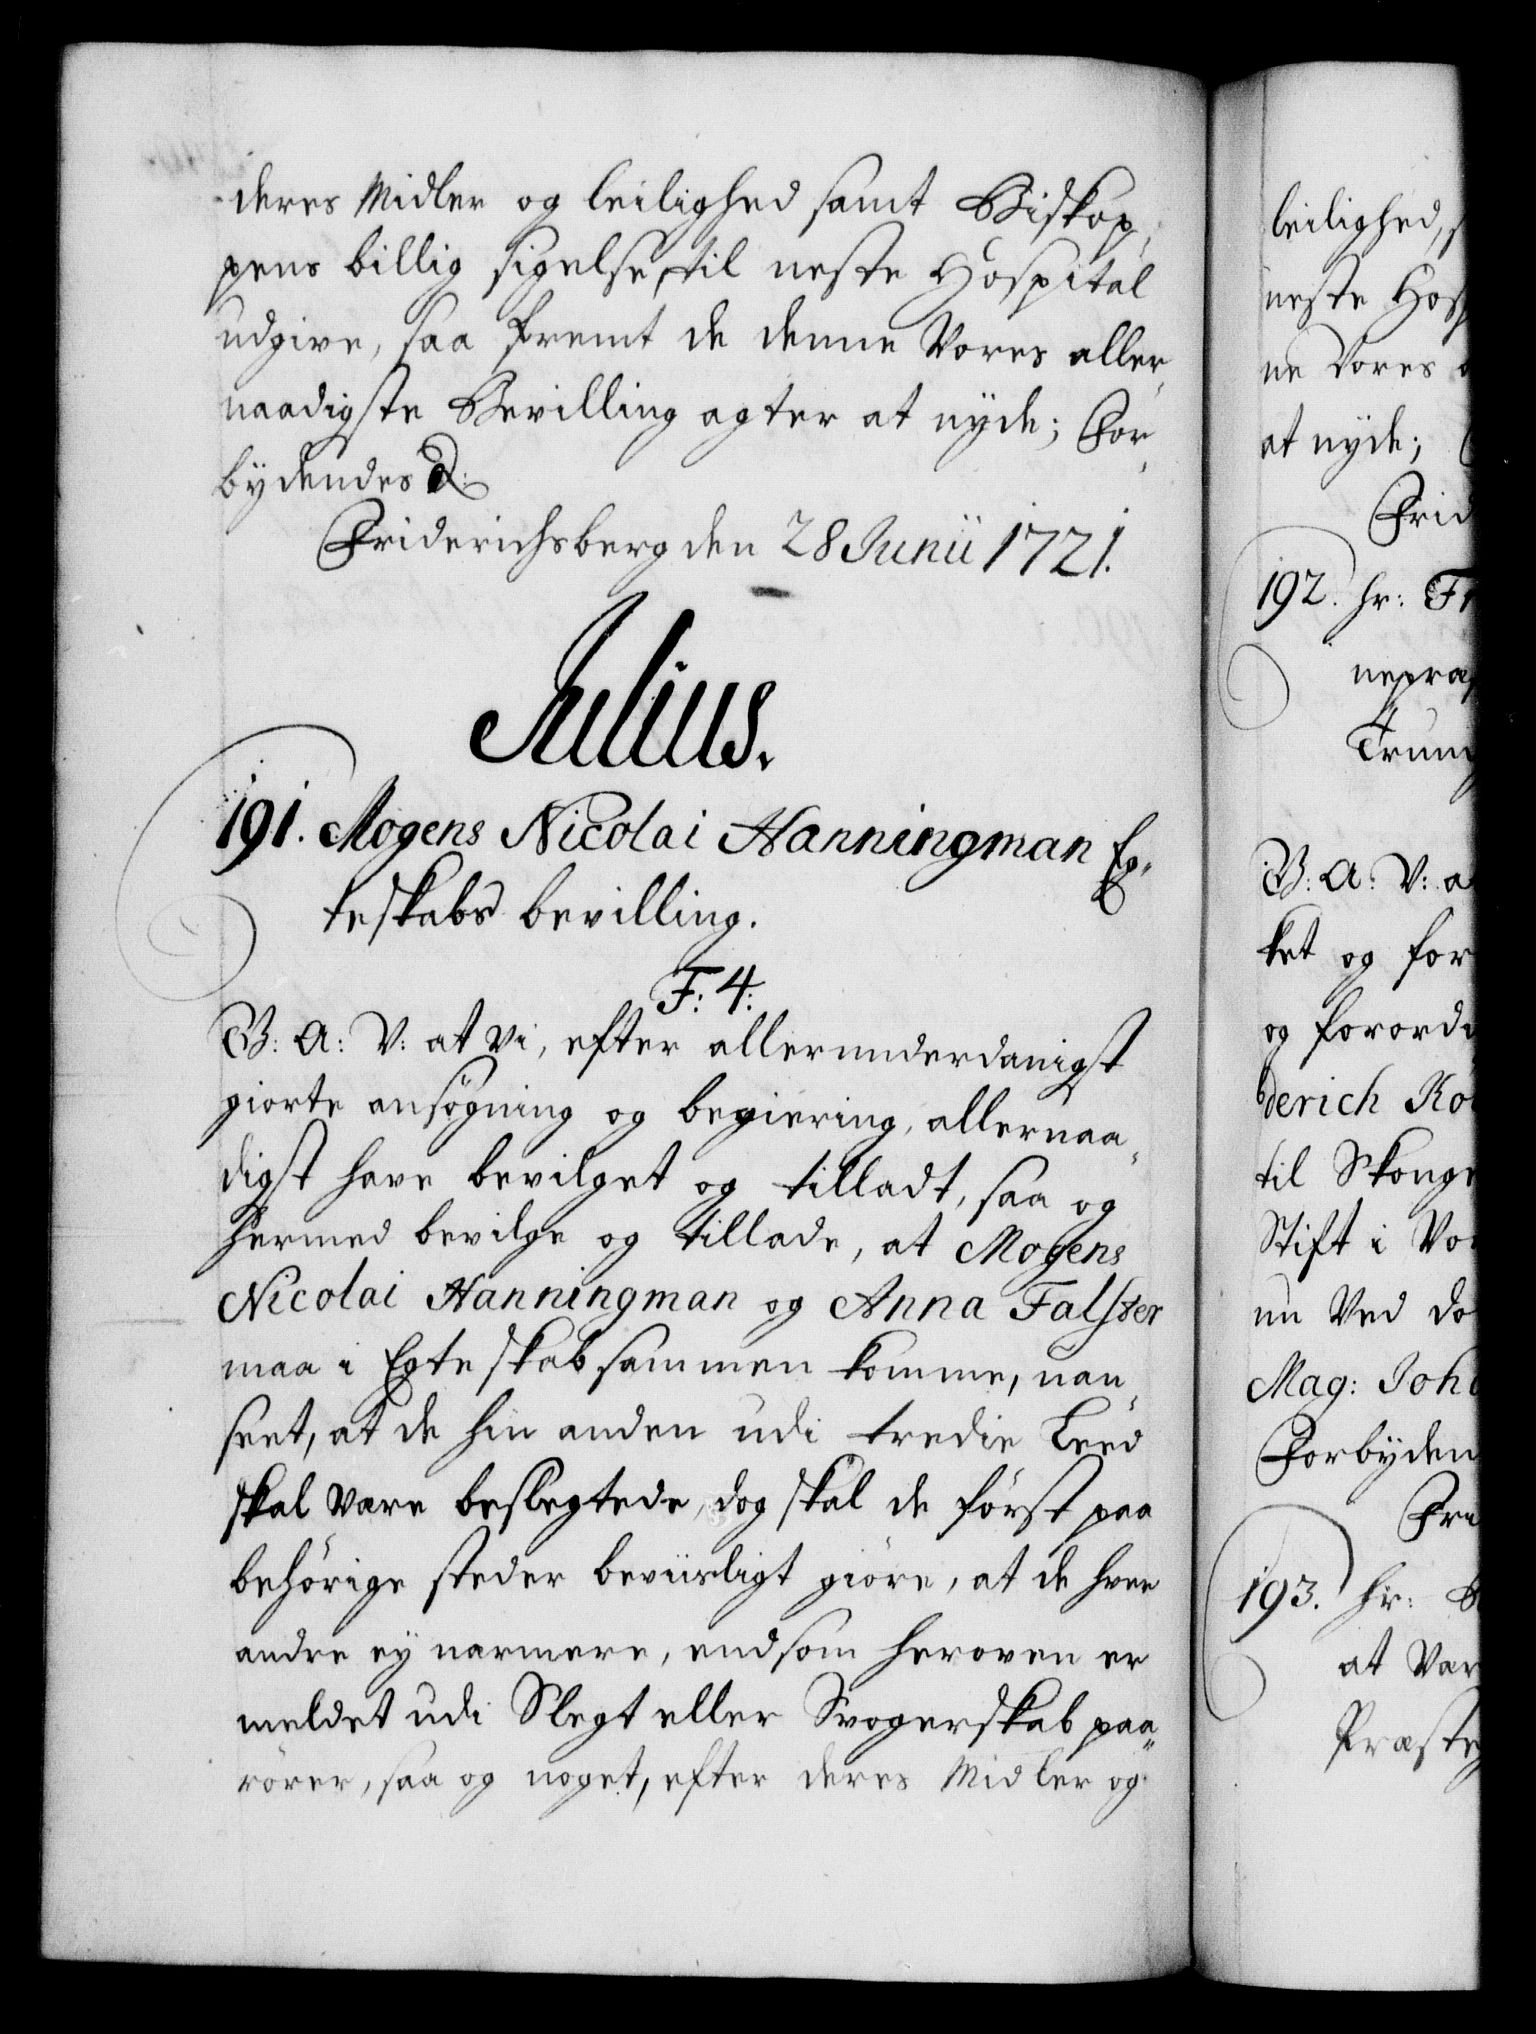 deres Midler og leilighed samt Biskop,
pens billig sigelse, til neste Hospital
udgive, saa fremt de denne Vores aller,
naadigste Bevilling agter at nyde; For,
bydendes &:
Friderichsberg den 28 Junii 1721.
Julius.
191. Mogens Nicolai Hanningman Eg-
teskabs bevilling.
F: 4:
G: A: V: at vi, efter allerunderdanigst
giorte ansøgning og begiering, allernaa-
digst have bevilget og tilladt, saa og
hermed bevilge og tillade, at Mogens
Nicolai Hanningman og Anna Falster
maa i Egteskab sammen komme, uan,
seet, at de hin anden udi tredie Leed
skal være beslegtede, dog skal de først paa
behørige steder beviisligt giøre, at de hver
andre ey nærmere, end som heroven er
meldet udi Slegt eller Svogerskab paa-
rører, saa og noget, efter deres Midler og
leilighed, s
neste Hosp
ne Vores a
at nyde;
Frid
192. hr: Fr
nepræ
Trun
G: A: V: a
ket og for
og forord
derich Kö
til Skonge
Stift i Vo
nu Ved dö
Mag: Joh
Forbyden
Fri
193. hr:
at Vær
Præste